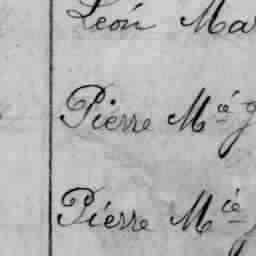 Léon Ma
Pierre M.ié J
Pierre M.ie